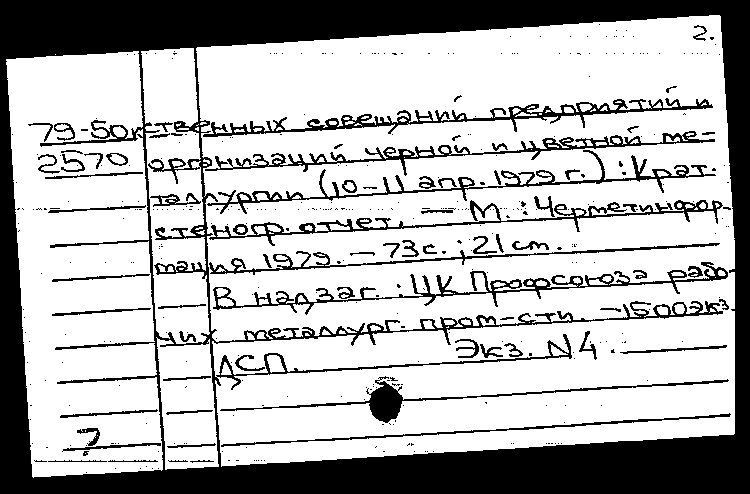 2.
79-50к ственных совещаний предприятий и
2570 организаций черной и цветной ме-
таллургии (10-11 апр. 1979 г.) : Крат.
стеногр. отчет. — М. : Черметинфор-
мация, 1979. — 73 с. ; 21 см.
В надзаг. : ЦК Профсоюза рабо-
чих металлург. пром-сти. — 1500 экз.
ДСП. Экз. N 4.
?